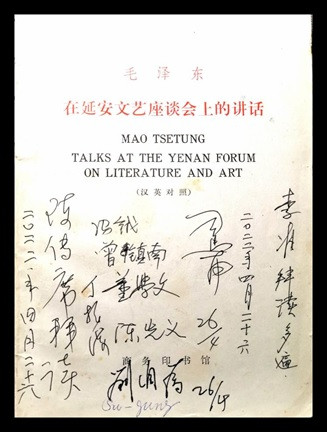 毛泽东
在延安文艺座谈会上的讲话
MAO TSETUNG
TALKS AT THE YENAN FORUM
ON LITERATURE AND ART
（汉英对照）
李准拜读多遍
二〇二二年四月二十六
26/4
曾镇南
董学文
陈先义
陈传席拜读
二〇二二年四月二十六
商务印书馆
26/4